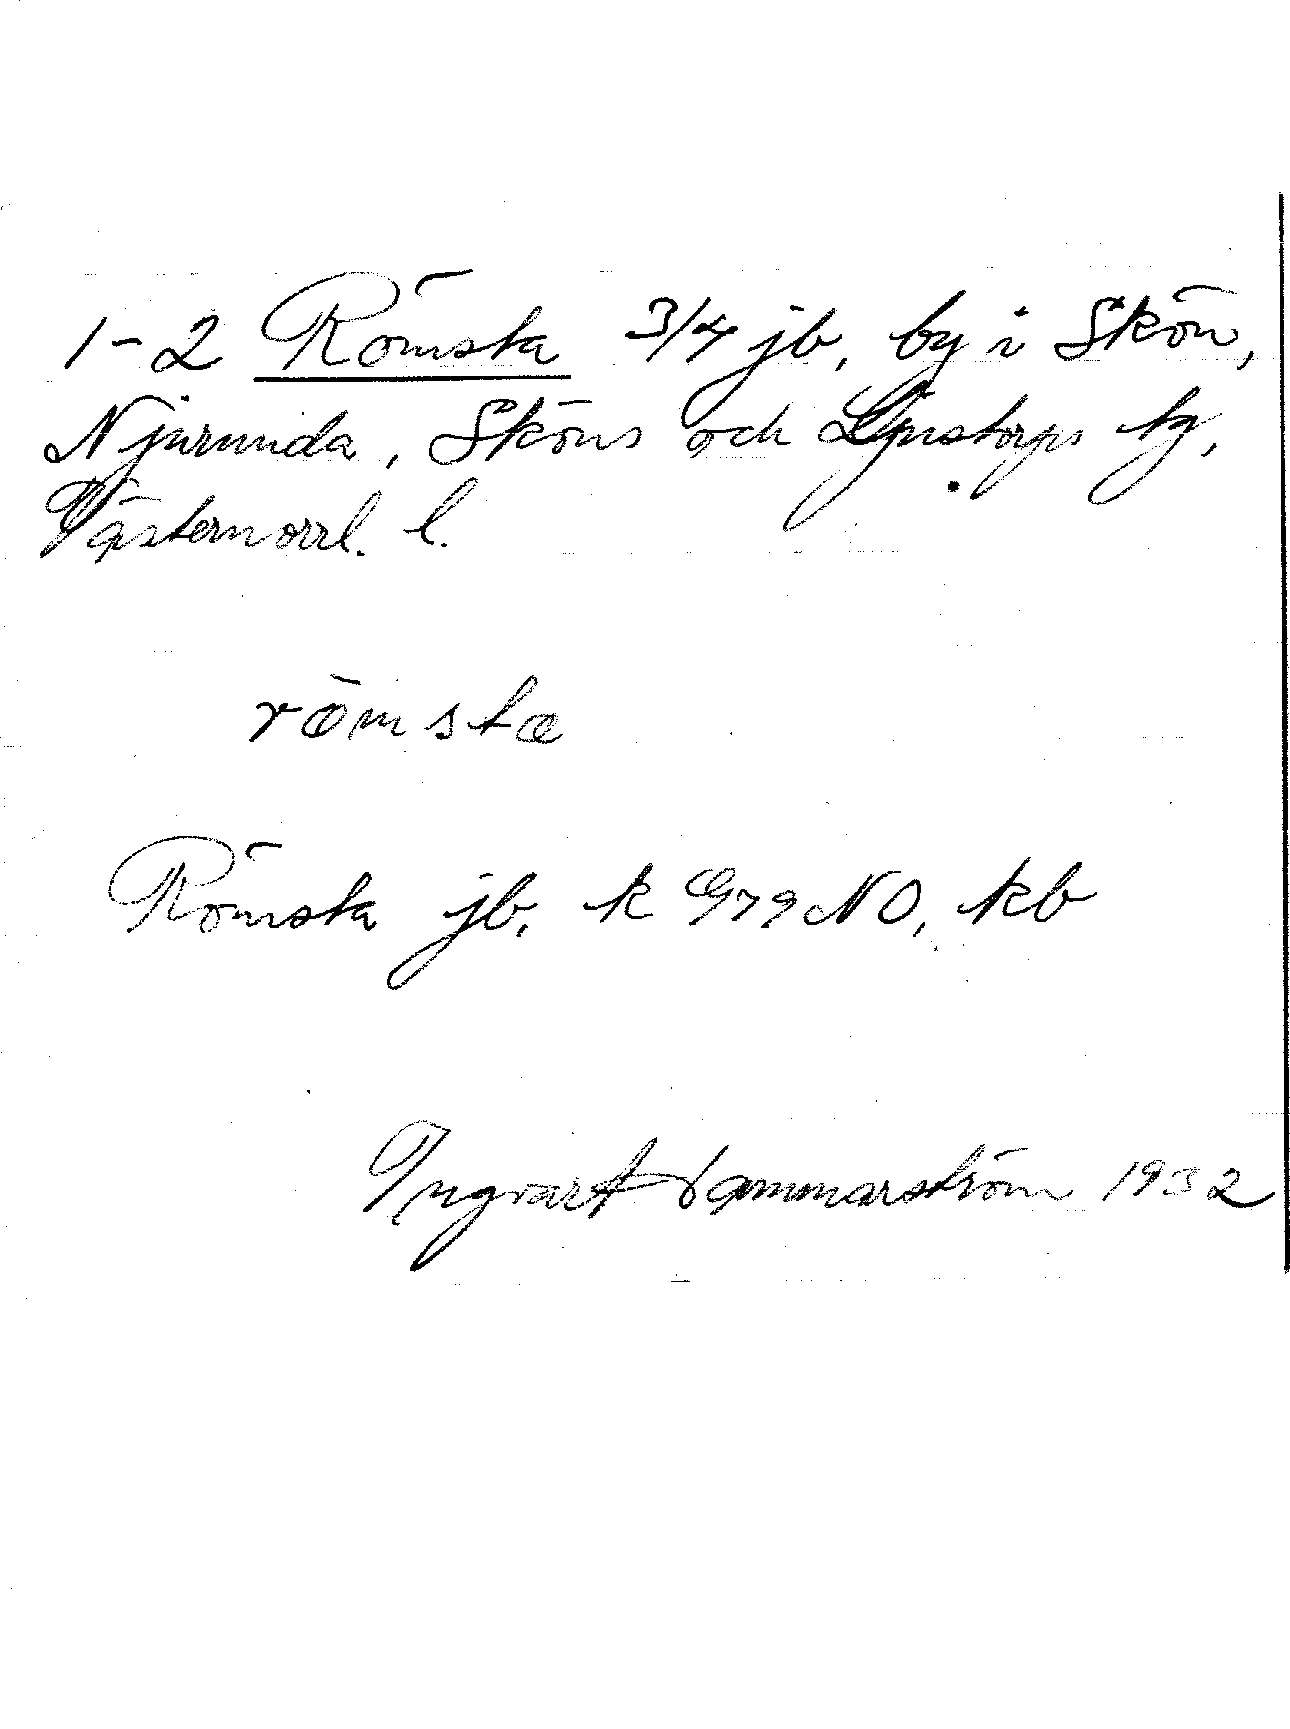 1-2 Römsta 3/4 jb, by i Skön,
Njurunda, Sköns och Ljustorps tg,
Västernorrl. l.
römsta
Römsta jb, k G79NO, kb
Ingvart Hammarström 1932